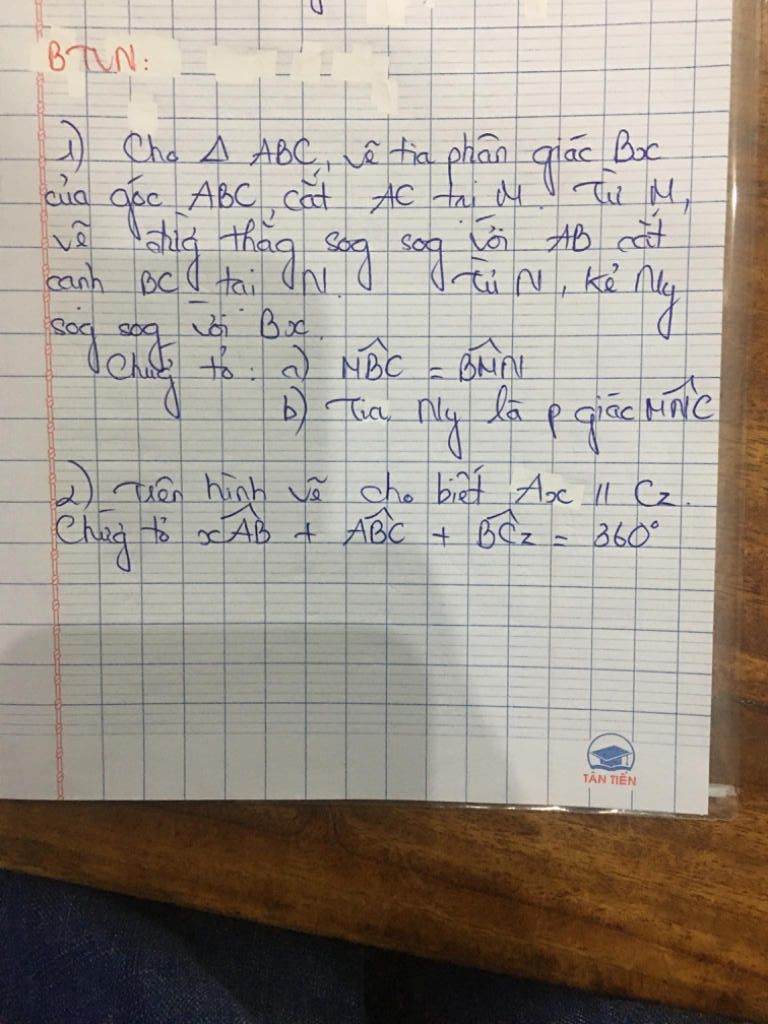 BTVN:
1) Cho Δ ABC, vẽ tia phân giác Bx
của góc ABC, cắt AC tại M. Từ M,
vẽ đường thẳng sog sog với AB cắt
cạnh BC tại N. Từ N, kẻ Ny
sog sog với Bx.
Chứng tỏ: a) MBC = BMN
b) Tia Ny là p giác MNC
2) Trên hình vẽ cho biết Ax // Cz.
Chứg tỏ xAB + ABC + BCz = 360°
TÂN TIẾN